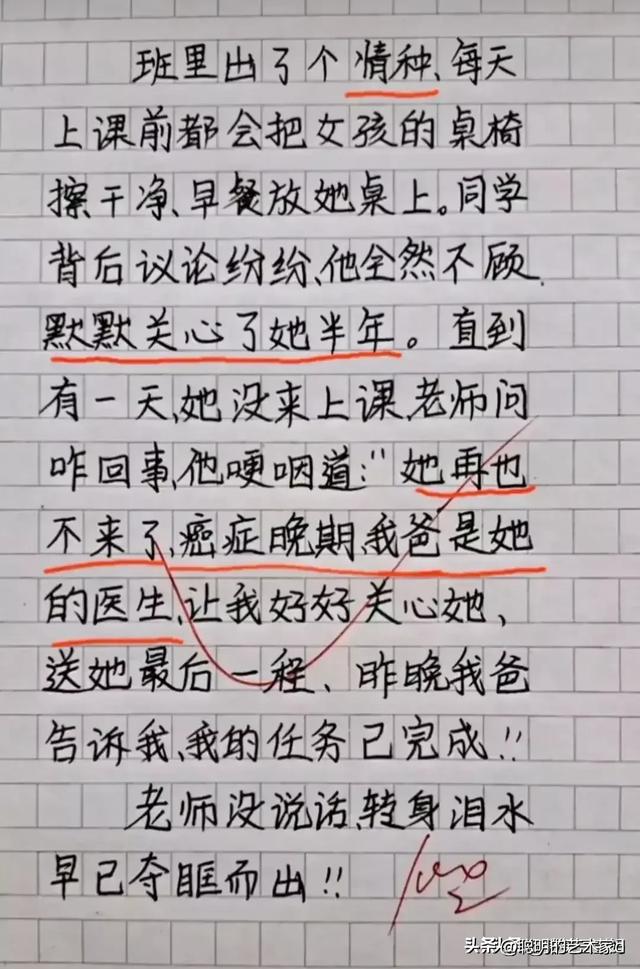 班里出了个情种、每天
上课前都会把女孩的桌椅
擦干净、早餐放她桌上。同学
背后议论纷纷、他全然不顾、
默默关心了她半年。直到
有一天、她没来上课、老师问
咋回事、他哽咽道:“她再也
不来了、癌症晚期、我爸是她
的医生、让我好好关心她、
送她最后一程、昨晚我爸
告诉我、我的任务已完成!!
老师没说话、转身泪水
早已夺眶而出!!
100